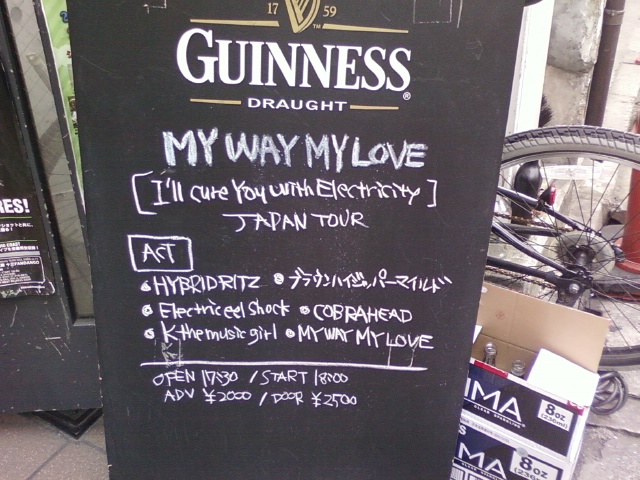 17 59
GUINNESS
DRAUGHT
MY WAY MY LOVE
[I'll cure You with Electricity]
JAPAN TOUR
ACT
• HYBRID RITZ • ブラウンハイジッパーマイルド
• Electric eel Shock • COBRAHEAD
• K the music girl • MY WAY MY LOVE
OPEN 17:30 / START 18:00
ADV ¥2000 / DOOR ¥2500
RES!
IMA
8oz
(236ml)
MA
8oz